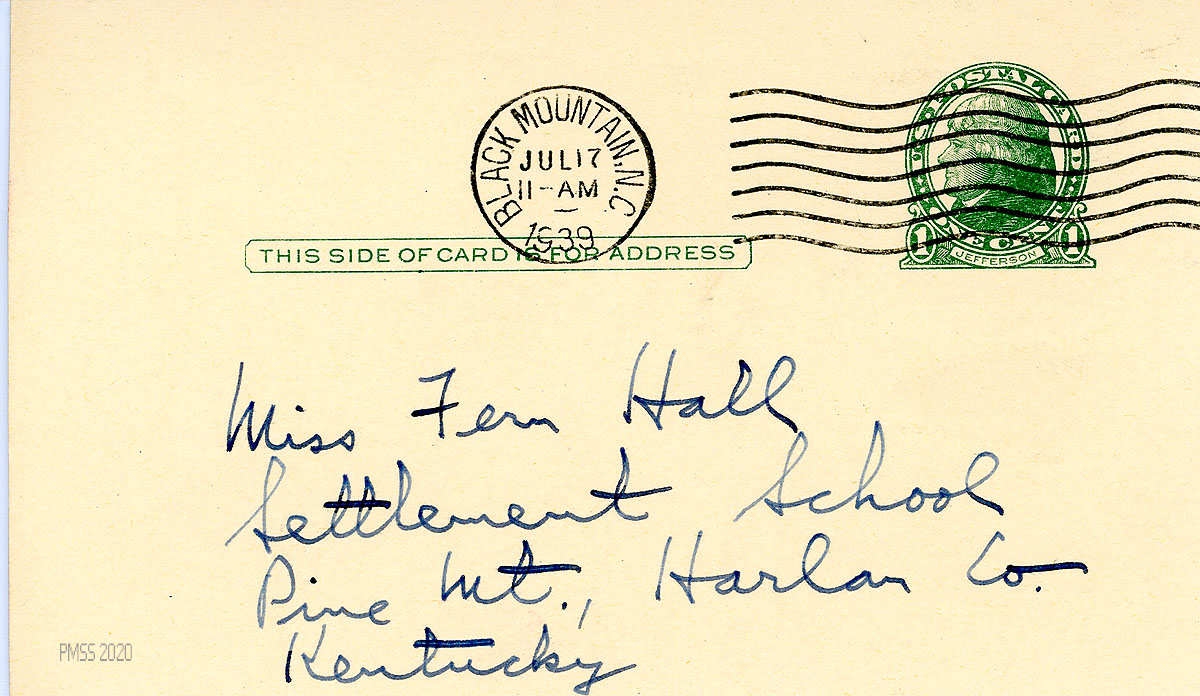 BLACK MOUNTAIN, N.C.
JUL 17
11-AM
1939
POSTAL CARD
1 1
JEFFERSON
THIS SIDE OF CARD IS FOR ADDRESS
Miss Fern Hall
Settlement School
Pine Mt., Harlan Co.
Kentucky
PMSS 2020